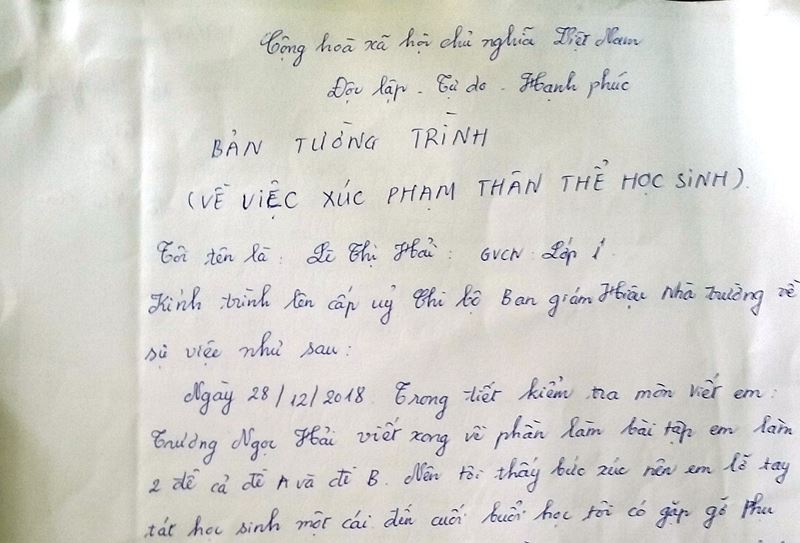 Cộng hoà xã hội chủ nghĩa Việt Nam
Độc lập - Tự do - Hạnh phúc
BẢN TƯỜNG TRÌNH
(VỀ VIỆC XÚC PHẠM THÂN THỂ HỌC SINH).
Tôi tên là: Lê Thị Hải: GVCN Lớp 1
Kính trình lên cấp uỷ Chi bộ Ban giám Hiệu nhà trường về
sự việc như sau:
Ngày 28/12/2018. Trong tiết kiểm tra môn viết em:
Trương Ngọc Hải viết xong về phần làm bài tập em làm
2 đề cả đề A và đề B. Nên tôi thấy bức xúc nên em lỡ tay
tát học sinh một cái đến cuối buổi học tôi có gặp gỡ Phụ